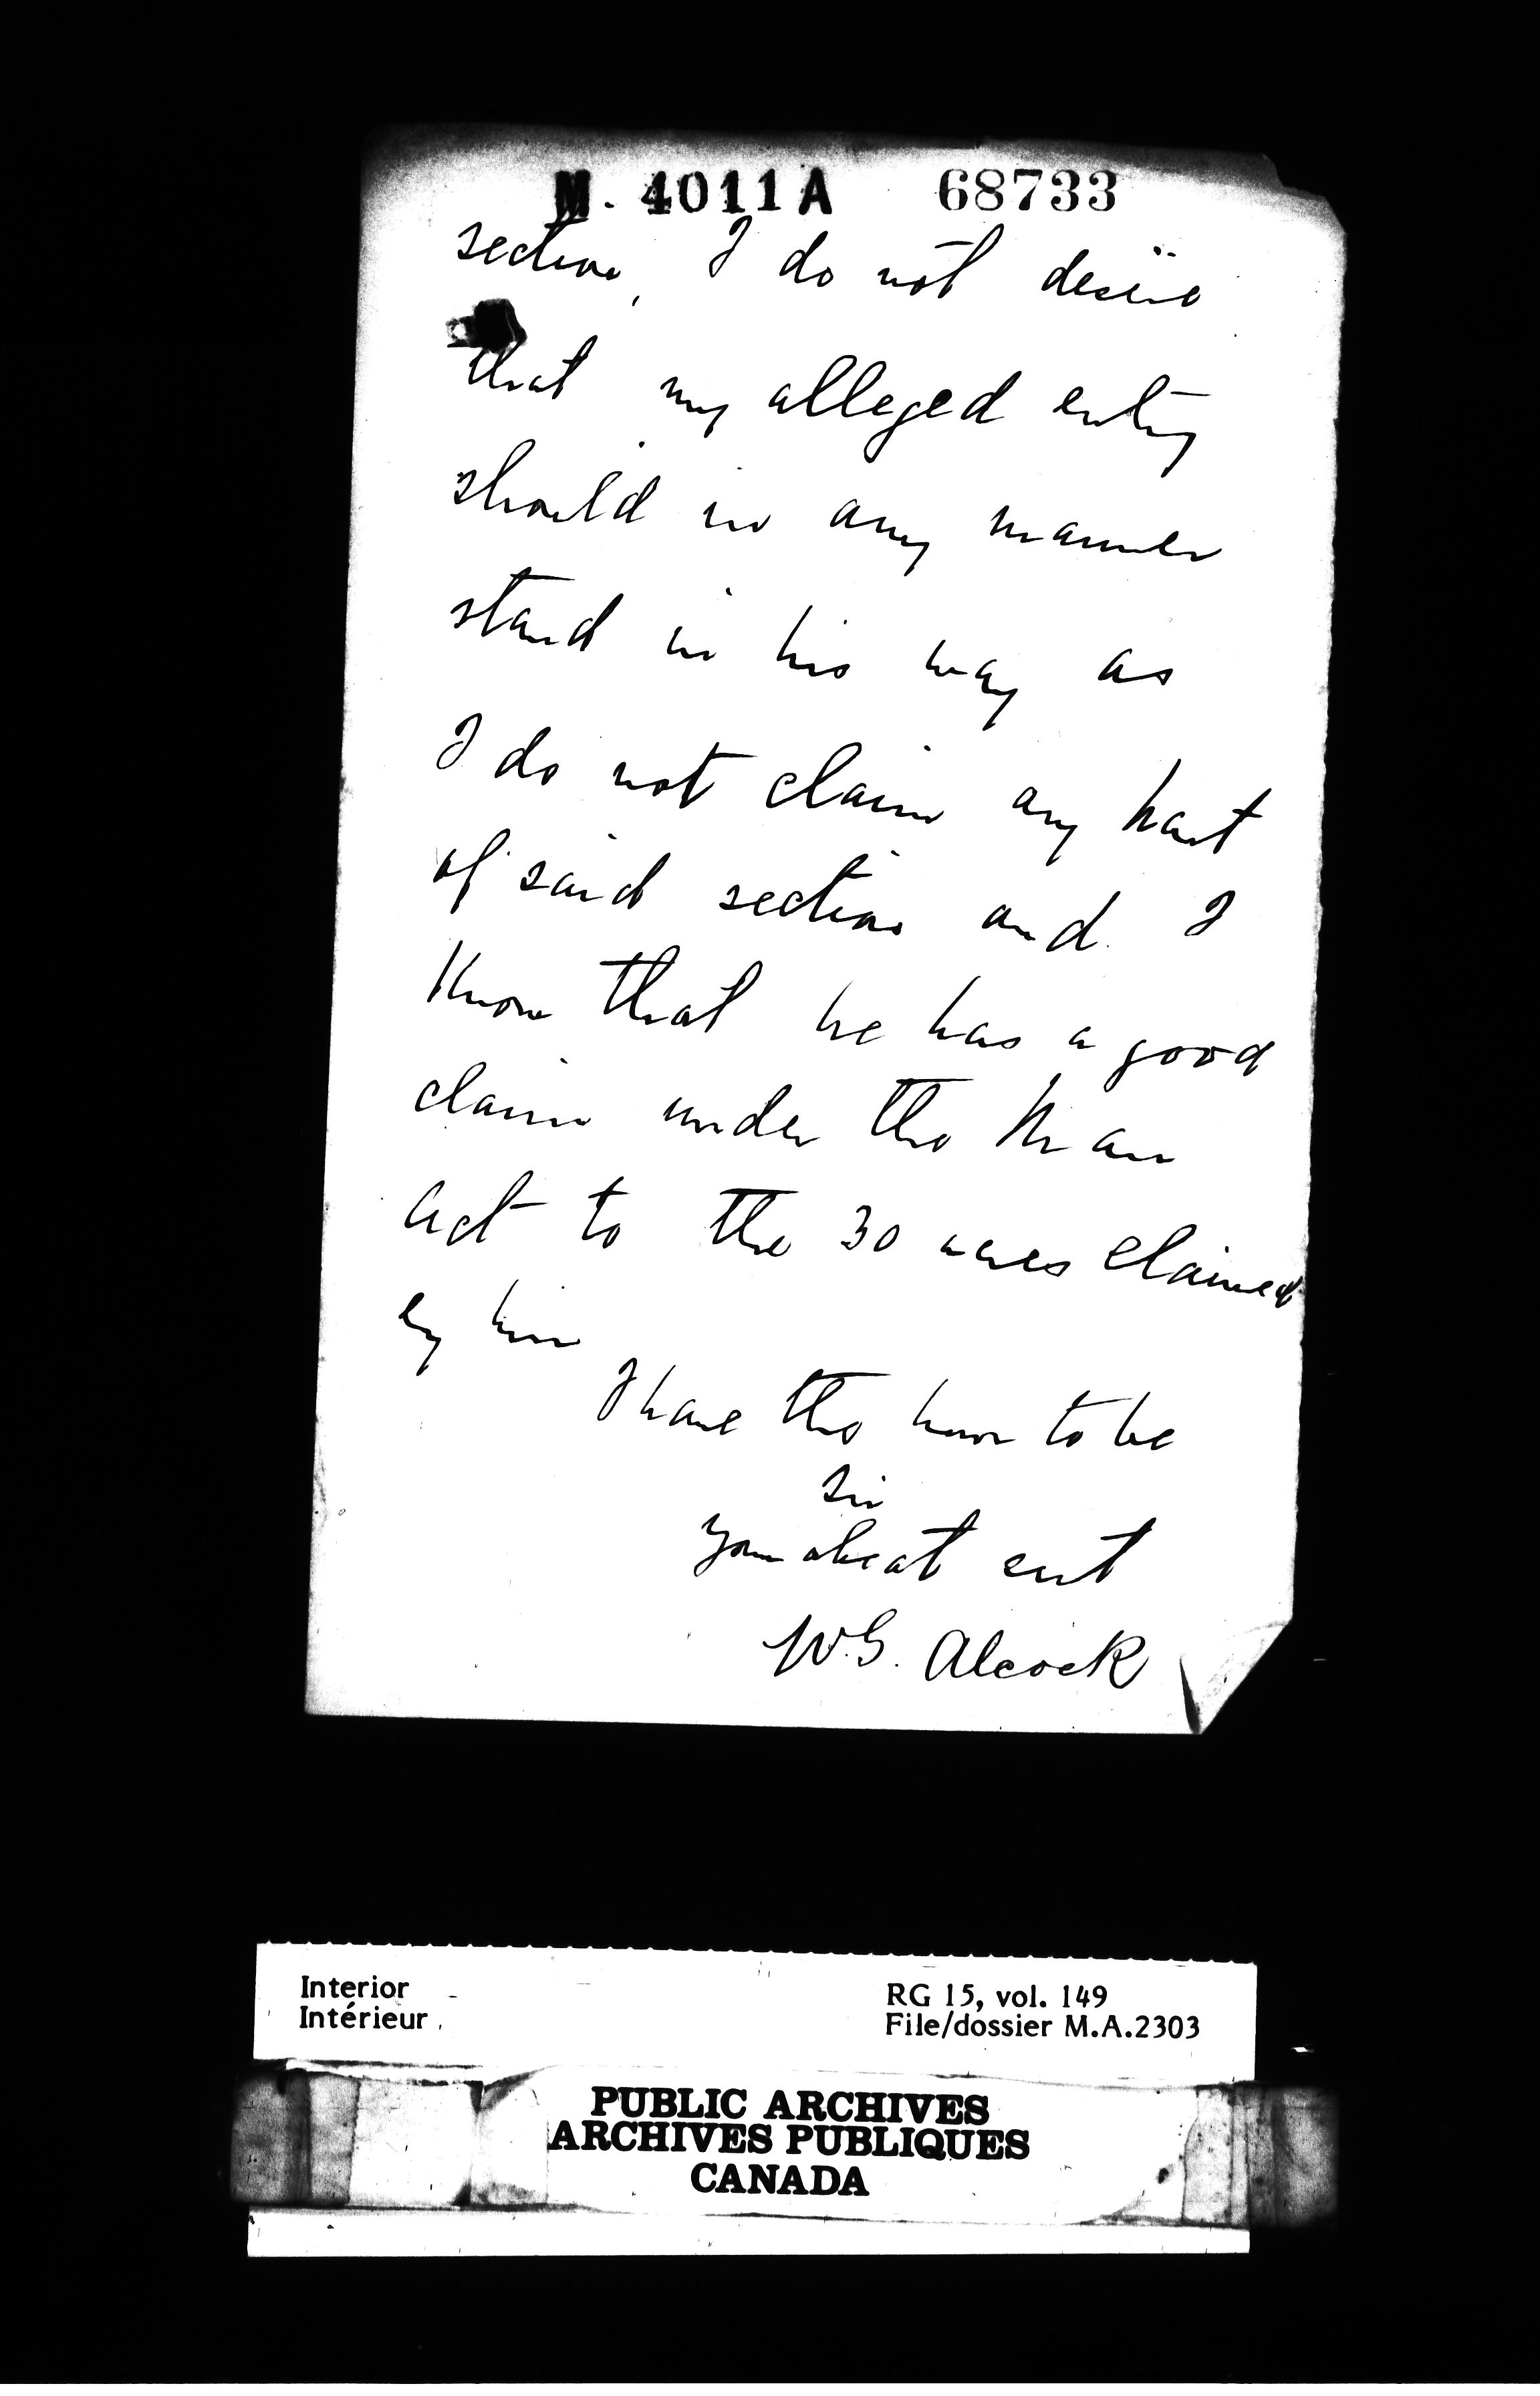 M. 4011A 68733
section, I do not desire
that my alleged entry
should in any manner
stand in his way as
I do not claim any part
of said section and I
Know that he has a good
claim under the Man
Act to the 30 acres claimed
by him
I have the honor to be
Sir
Your obedt svt
W.G. Alcock
Interior
Intérieur
RG 15, vol. 149
File/dossier M.A.2303
PUBLIC ARCHIVES
ARCHIVES PUBLIQUES
CANADA